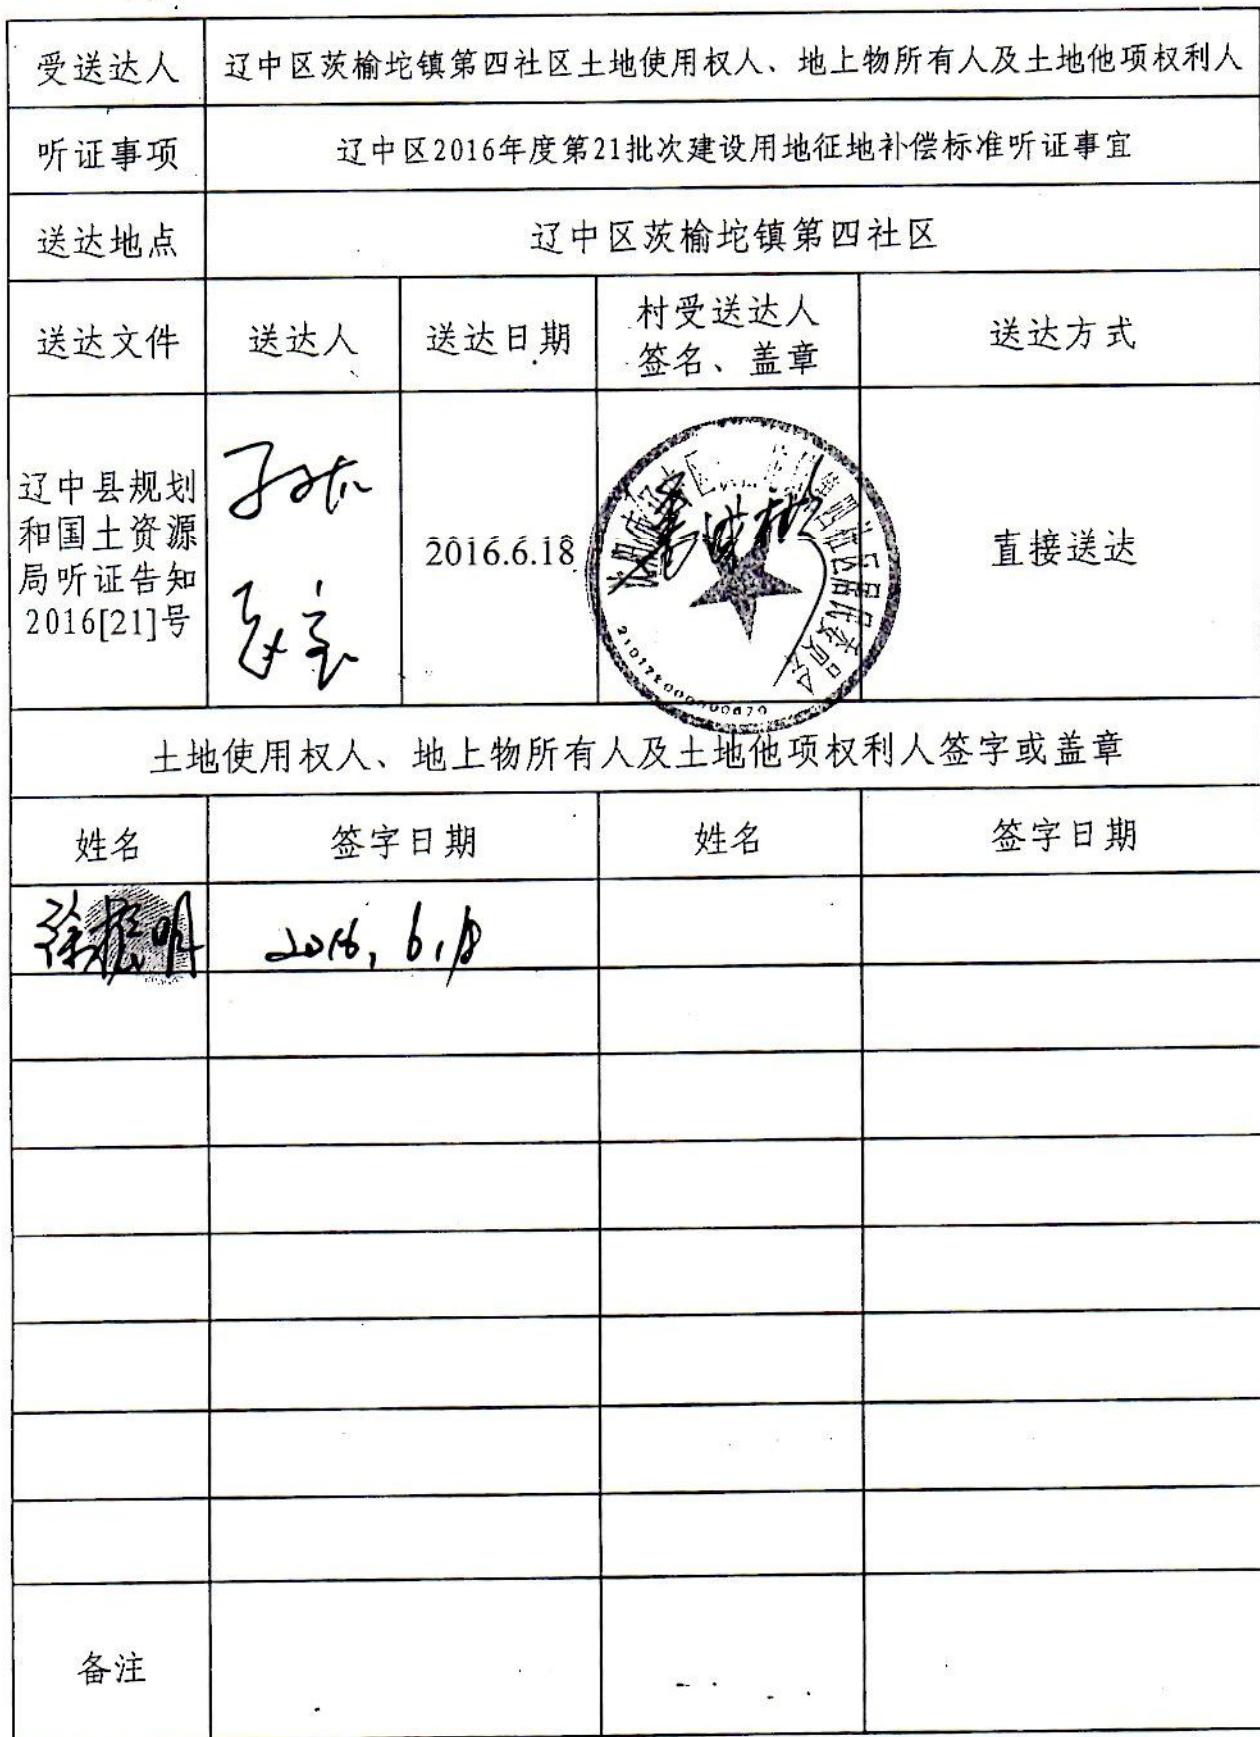 受送达人 辽中区茨榆坨镇第四社区土地使用权人、地上物所有人及土地他项权利人
听证事项 辽中区2016年度第21批次建设用地征地补偿标准听证事宜
送达地点 辽中区茨榆坨镇第四社区
送达文件 送达人 送达日期 村受送达人
签名、盖章 送达方式
辽中县规划
和国土资源
局听证告知
2016[21]号
2016.6.18
居民委员会
直接送达
土地使用权人、地上物所有人及土地他项权利人签字或盖章
姓名 签字日期 姓名 签字日期
徐振明 2016.6.18
备注